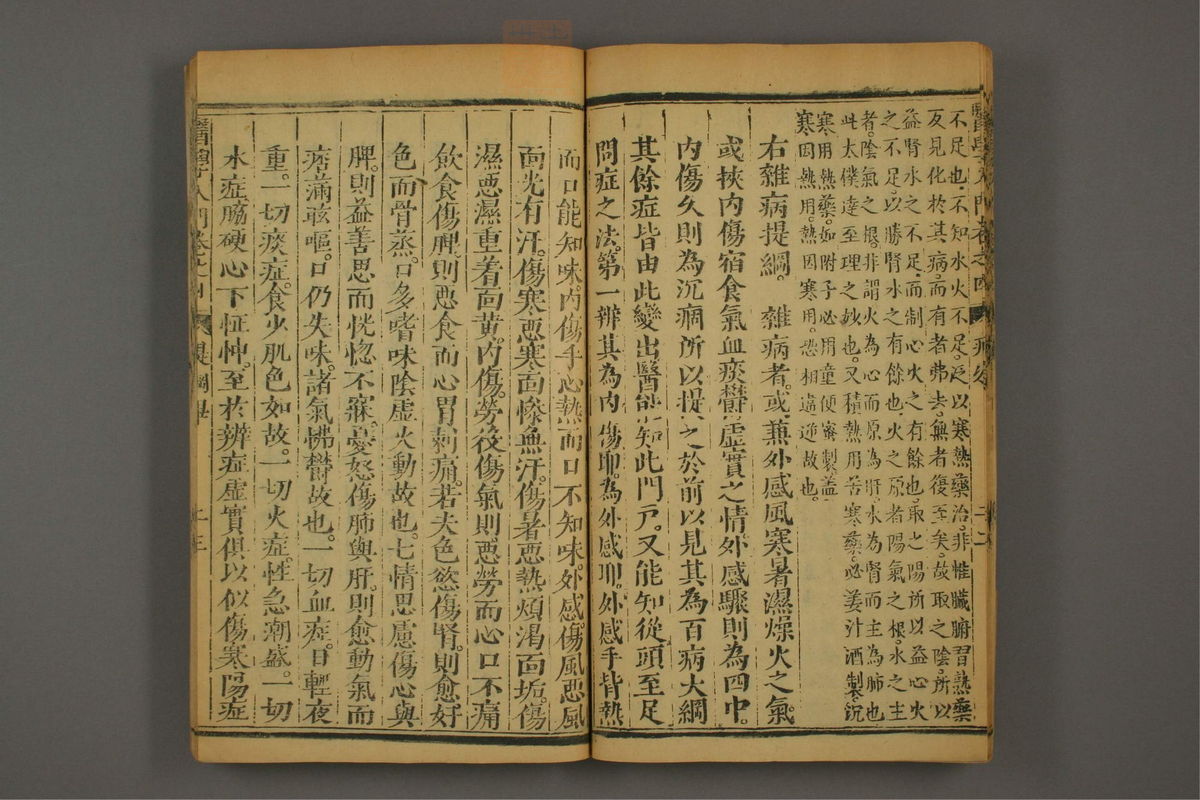 醫學入門卷之四
不足也不知水火不足泛以寒熱藥治非惟臟腑習熱藥
反見化於其病而有者弗去無者復至矣故取之陰所以
益腎水之不足而制心火之有餘也取之陽所以益心火
之不足以勝腎水之有餘也火之原者陽氣之根水之主
者陰氣之根非謂火為心而原為肝水為腎而主為肺也
此太僕達至理之妙也又積熱用苦寒藥必姜汁酒製沉
寒用熱藥如附子必用童便蜜製蓋
寒因熱用熱因寒用恐相違逆故也
右雜病提綱 雜病者或兼外感風寒暑濕燥火之氣
或挾內傷宿食氣血痰鬱虛實之情外感驟則為四中
內傷久則為沉痼所以提之於前以見其為百病大綱
其餘症皆由此變出醫能知此門戶又能知從頭至足
問症之法第一辨其為內傷耶為外感耶外感手背熱
而口能知味內傷手心熱而口不知味外感傷風惡風
面光有汗傷寒惡寒面慘無汗傷暑惡熱煩渴面垢傷
濕惡濕重着面黃內傷勞役傷氣則惡勞而心口不痛
飲食傷脾則惡食而心胃刺痛若夫色慾傷腎則愈好
色而骨蒸口多嗜味陰虛火動故也七情思慮傷心與
脾則益善思而恍惚不寐憂怒傷肺與肝則愈動氣而
痞滿咳嘔口仍失味諸氣怫鬱故也一切血症日輕夜
重一切痰症食少肌色如故一切火症性急潮盛一切
水症脇硬心下怔忡至於辨症虛實俱以似傷寒陽症
醫學入門卷之四
二三